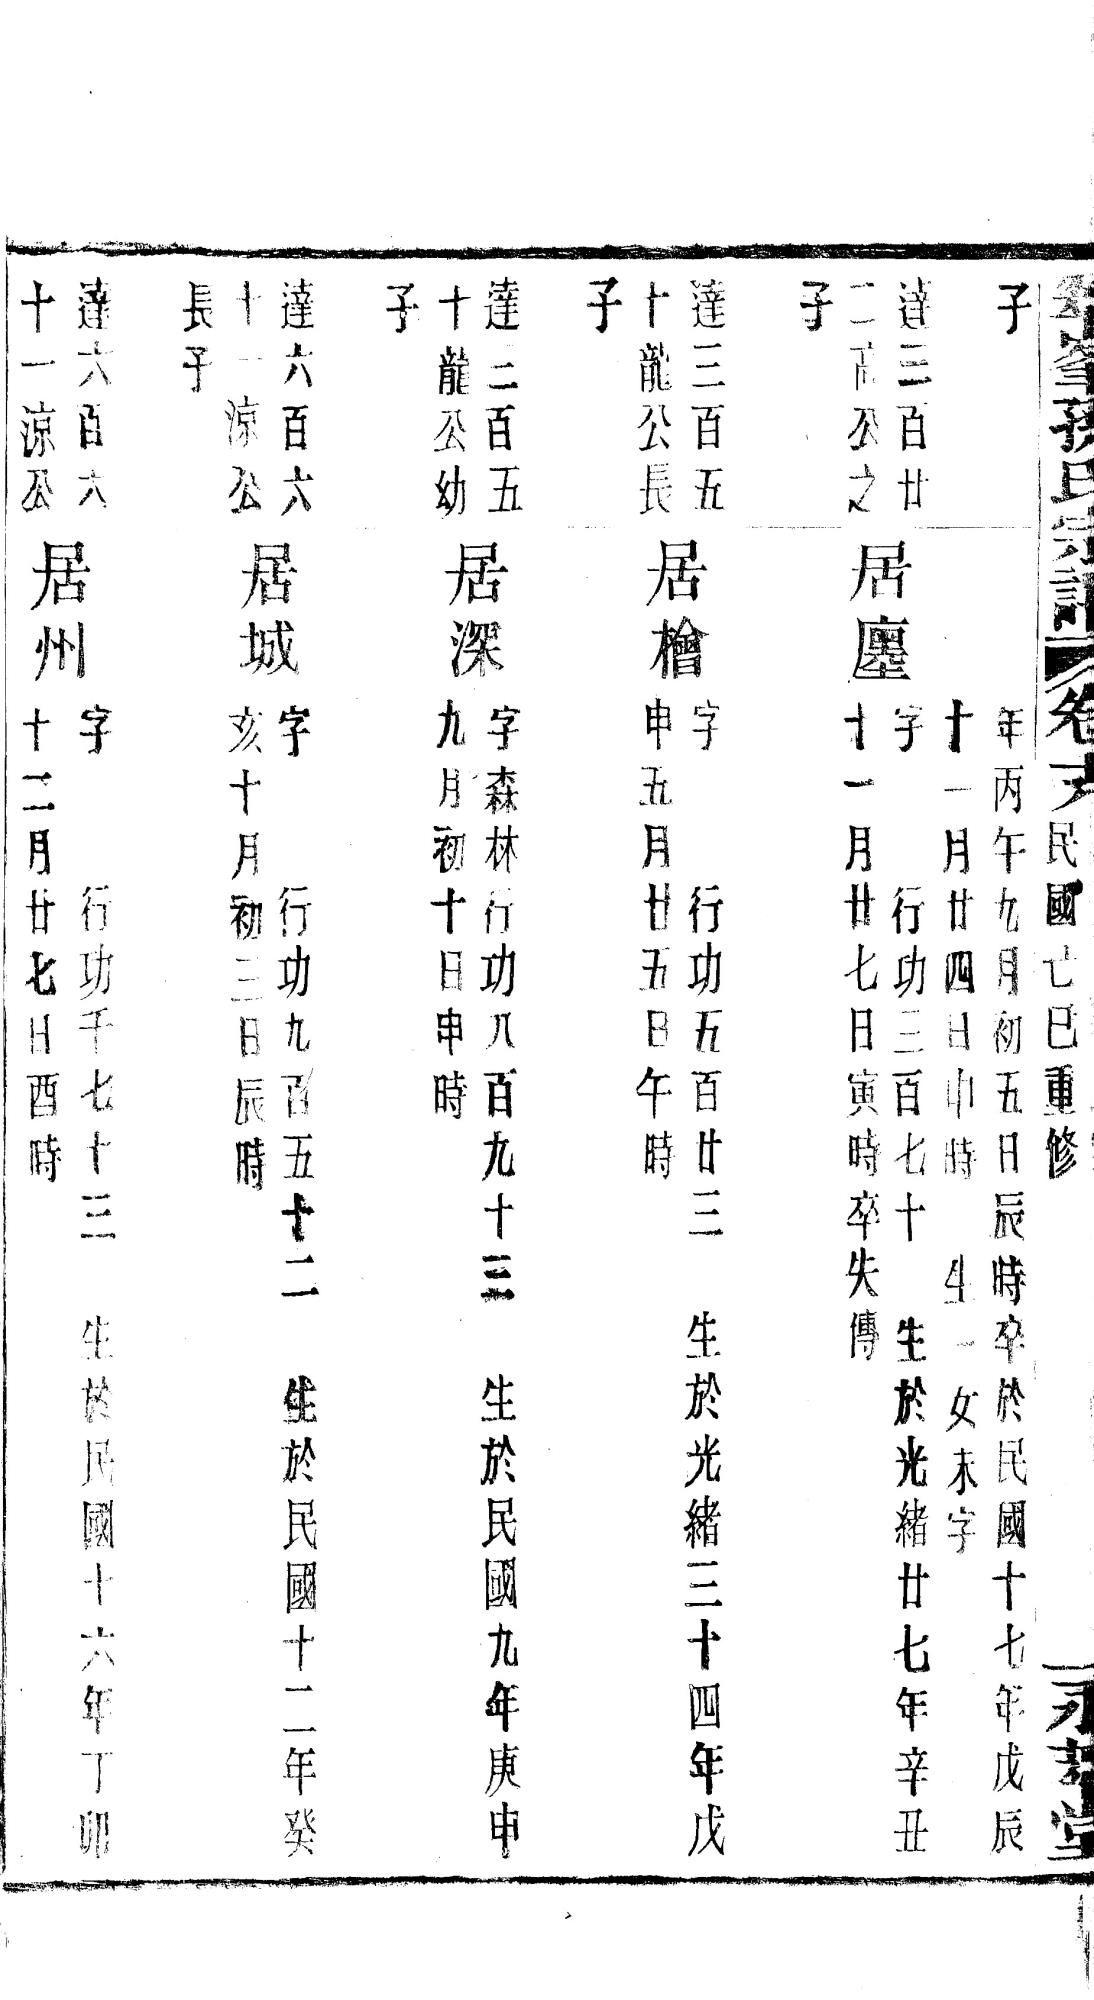 孫氏宗譜 卷 民國己巳重修 堂
子
年丙午九月初五日辰時卒於民國十七年戊辰
十一月廿四日申時 生一女未字
達三百廿
二高公之
子
居廛
字 行功三百七十 生於光緒廿七年辛丑
十一月廿七日寅時卒失傳
達三百五
十龍公長
子
居檜
字 行功五百廿三 生於光緒三十四年戊
申五月廿五日午時
達三百五
十龍公幼
子
居深
字森林行功八百九十三 生於民國九年庚申
九月初十日申時
達六百六
十一涼公
長子
居城
字 行功九百五十二 生於民國十二年癸
亥十月初三日辰時
達六百六
十一涼公
居州
字 行功千七十三 生於民國十六年丁卯
十二月廿七日酉時